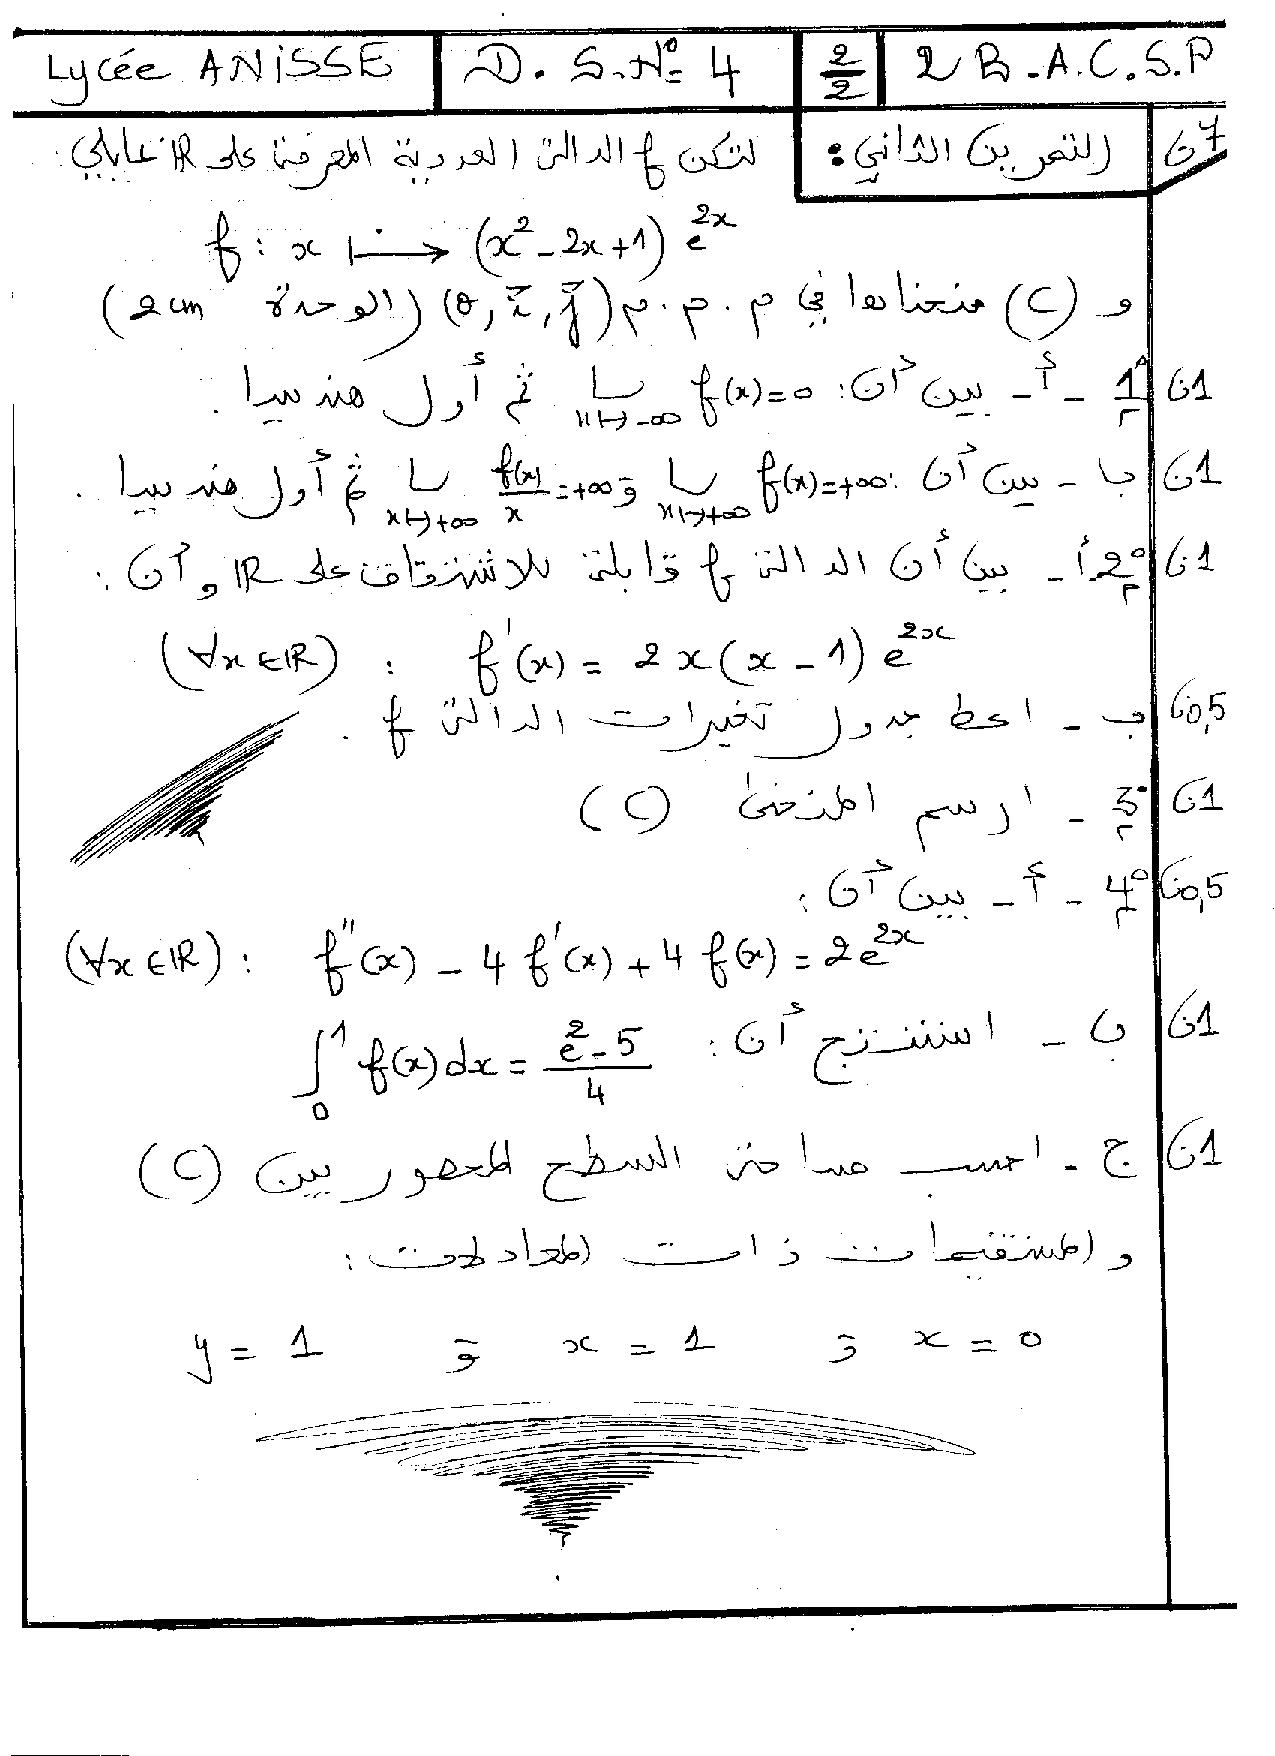 Lycée ANISSE D.S.N° 4 2/2 2 B.A.C.S.P
7ن التمرين الثاني: لتكن f الدالة العددية المعرفة على IR بمايلي:
f : x ⟼ (x² - 2x + 1) e^{2x}
و (C) منحناها في م.م.م (o, i⃗, j⃗) (الوحدة 2cm)
1ن 1° - أ - بين أن: نها_{x→-∞} f(x) = 0 ثم أول هندسيا.
1ن با - بين أن: نها_{x→+∞} f(x) = +∞ و نها_{x→+∞} f(x)/x = +∞ ثم أول هندسيا.
1ن 2° أ - بين أن الدالة f قابلة للاشتقاق على IR و أن:
(∀x∈IR) : f'(x) = 2x(x - 1) e^{2x}
0,5ن ب - اعط جدول تغيرات الدالة f.
1ن 3° - ارسم المنحنى (C)
0,5ن 4° - أ - بين أن:
(∀x∈IR) : f''(x) - 4 f'(x) + 4 f(x) = 2e^{2x}
1ن ب - استنتج أن: ∫₀¹ f(x)dx = (e² - 5)/4
1ن ج - احسب مساحة السطح المحصور بين (C)
و المستقيمات ذات المعادلات:
x = 0 و x = 1 و y = 1